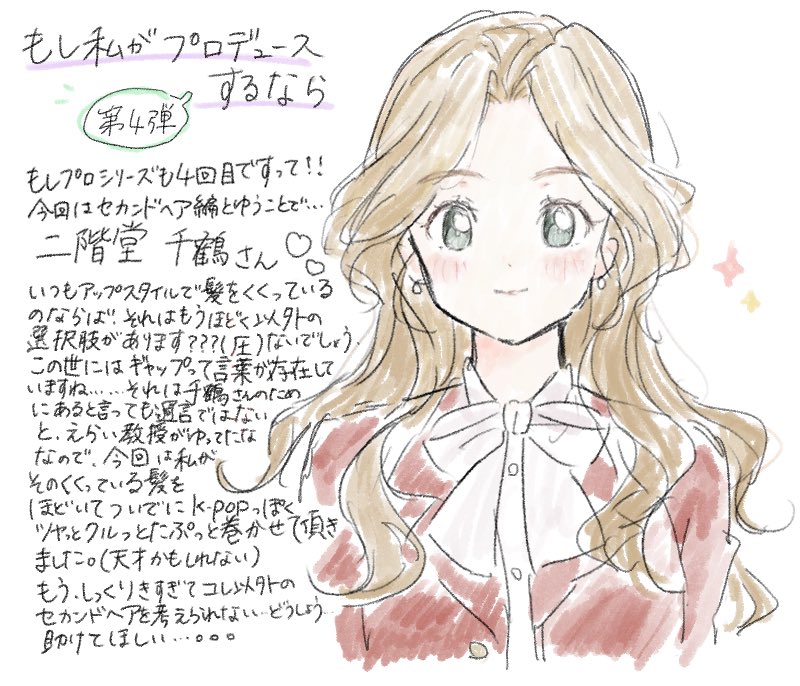 もし私がプロデュース
するなら
第4弾
もしプロシリーズも4回目ですって!!
今回はセカンドヘア編とゆうことで…
二階堂 千鶴さん♡♡
いつもアップスタイルで髪をくくっている
のならば!それはもうほどく以外の
選択肢があります???(圧)ないでしょう。
この世にはギャップって言葉が存在して
いますね……それは千鶴さんのため
にあると言っても過言ではない
と、えらい教授がゆってたな
なので、今回は私が
そのくくっている髪を
ほどいてついでにK-POPっぽく
ツヤっとクルっとたぷっと巻かせて頂き
ました。(天才かもしれない)
もう、しっくりきすぎてコレ以外の
セカンドヘアを考えられない…どうしよう…
助けてほしい…。。。